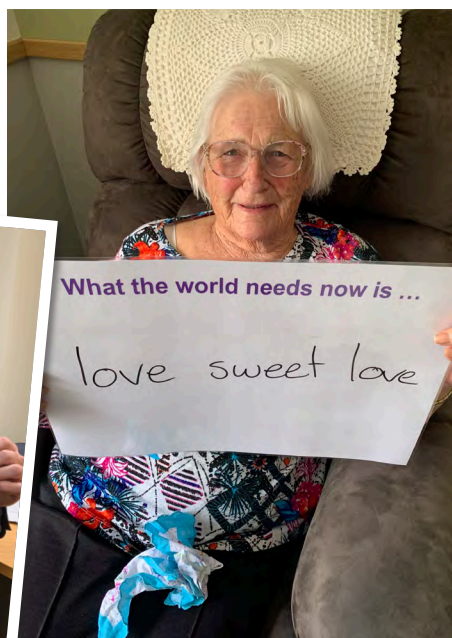 What the world needs now is ...
love sweet love